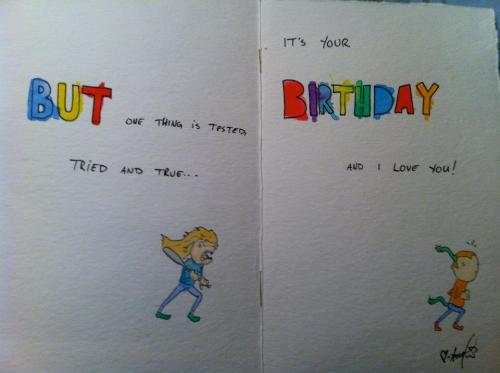 BUT ONE THING IS TESTED,
TRIED AND TRUE...
IT'S YOUR
BIRTHDAY
AND I LOVE YOU!